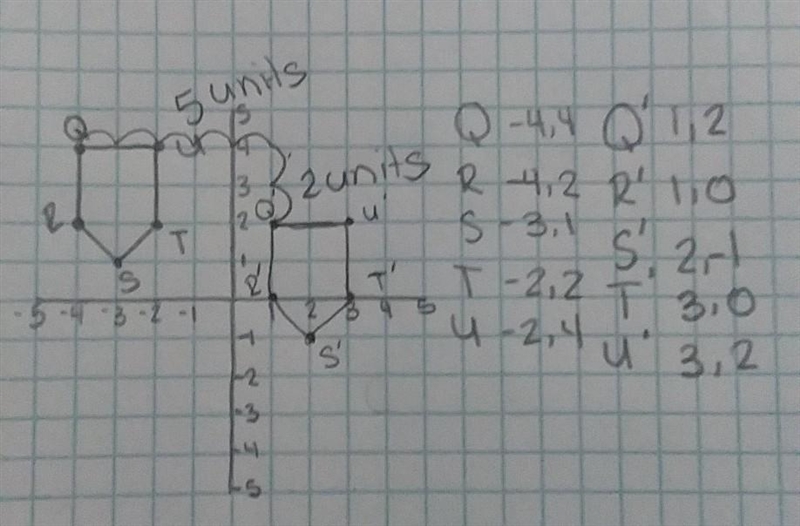 5 units
5
Q
U
4
3
2 units
R
T
2
Q'
U'
S
1
R'
T'
-5 -4 -3 -2 -1
1 2 3 4 5
-1
S'
-2
-3
-4
-5
Q -4,4 Q' 1,2
R -4,2 R' 1,0
S -3,1 S' 2,-1
T -2,2 T' 3,0
U -2,4 U' 3,2